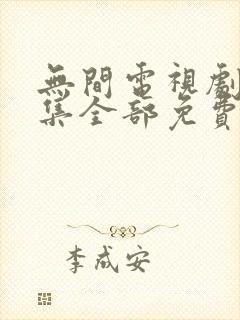 無間電視劇
集全部免費
李成安